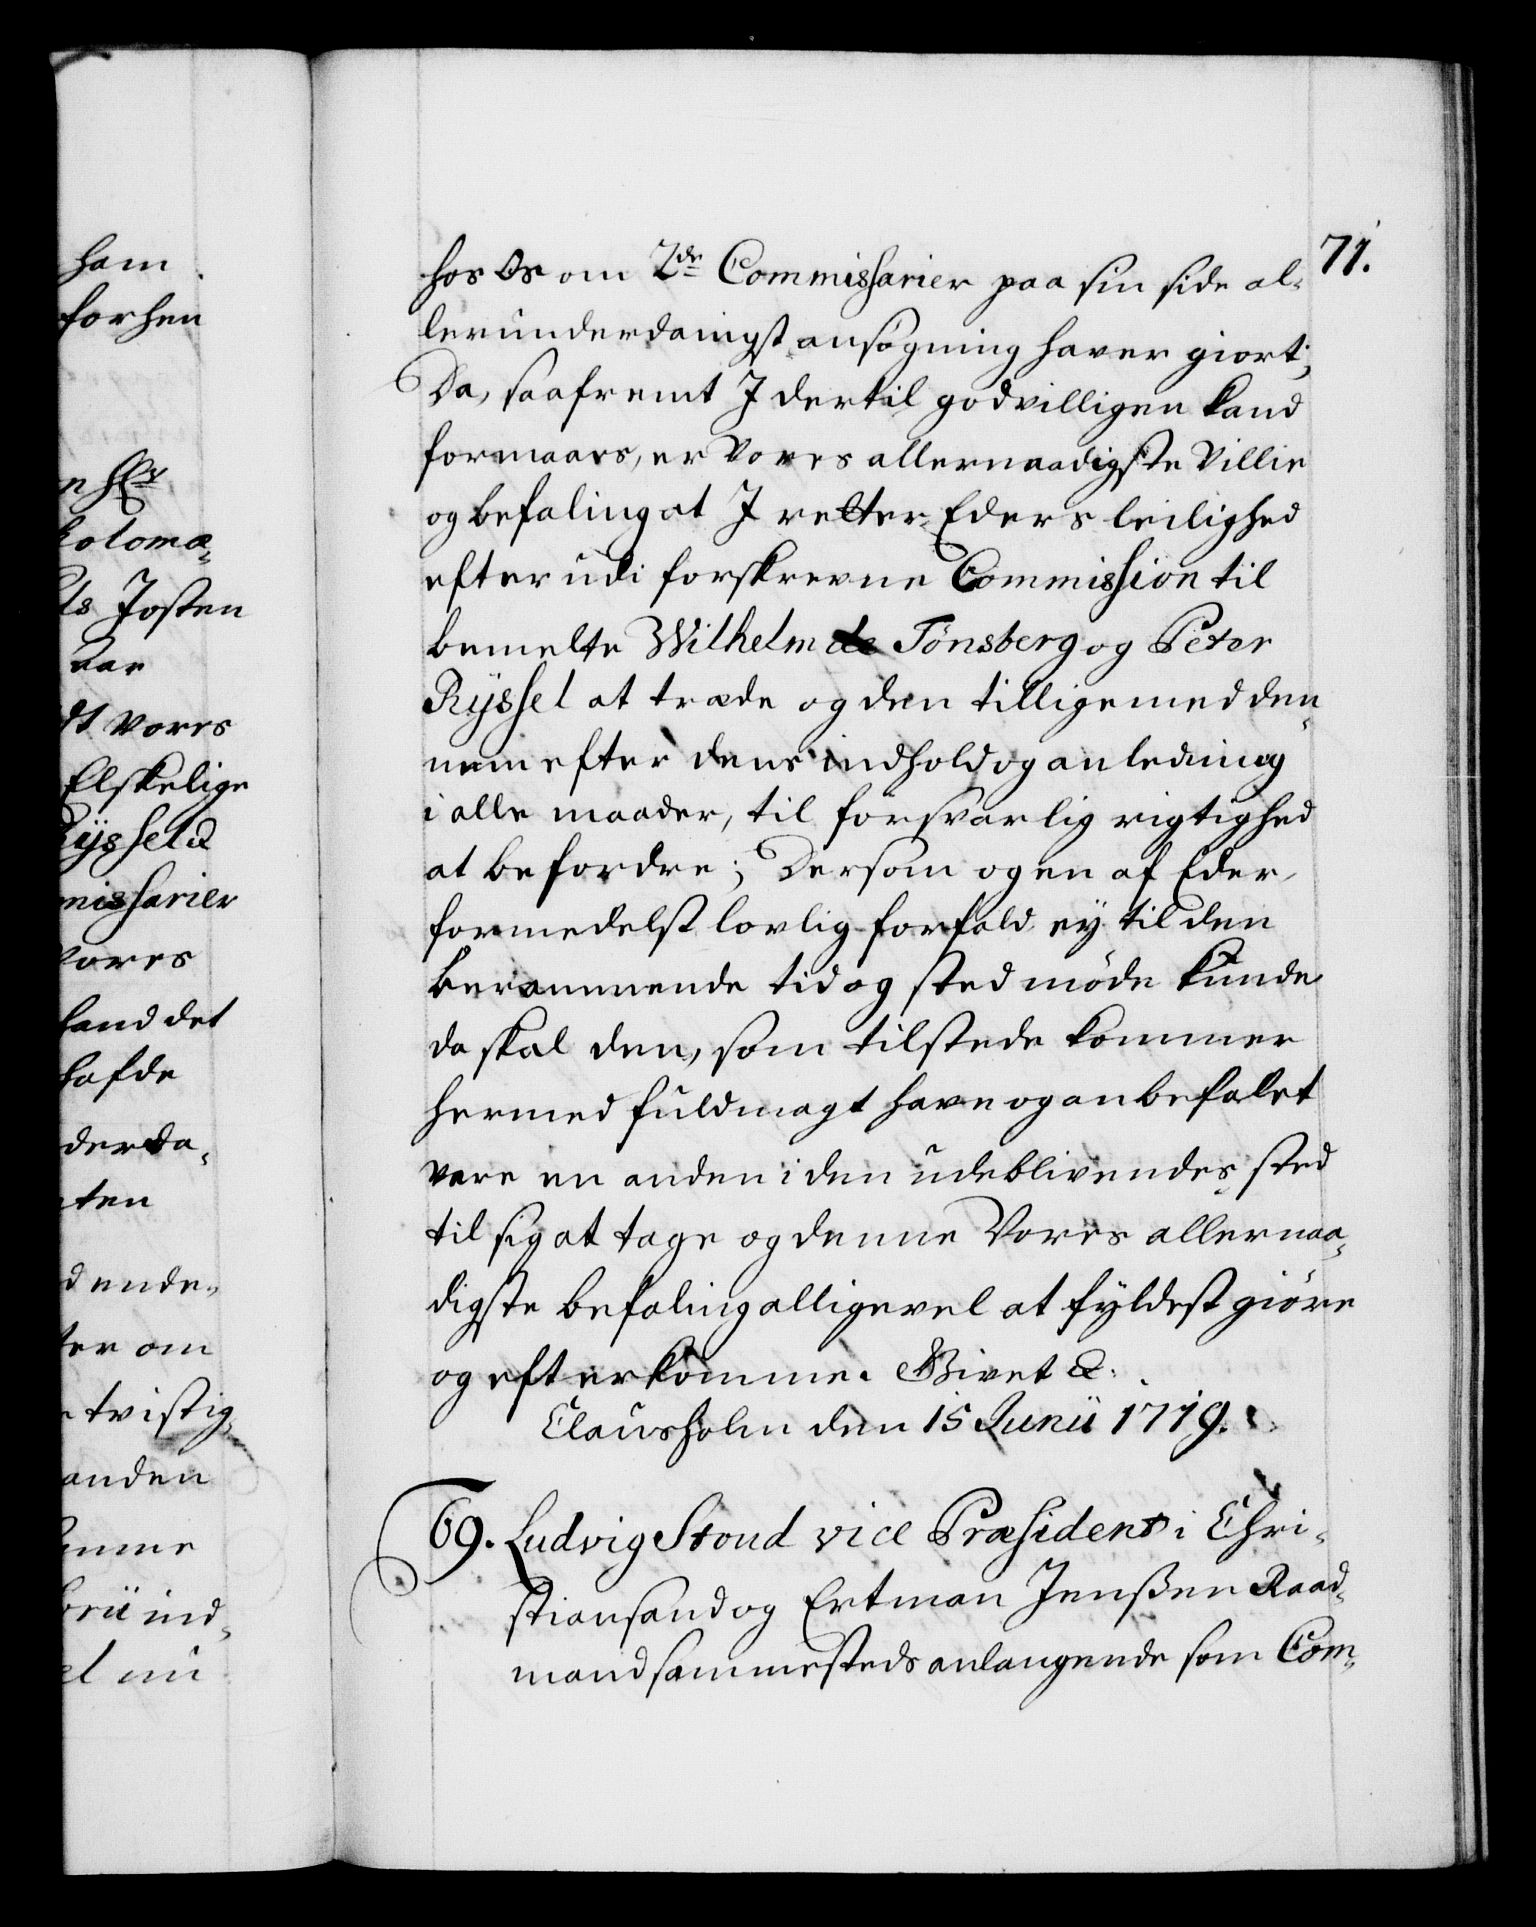 71.
hos Os om 2de Commissarier paa sin side al-
lerunderdanigst ansøgning haver giort;
Da, saafremt I dertil godvilligen kand
formaaes, er Vores allernaadigste Villie
og befaling at I retter Eders leilighed
efter udi forskrevne Commission til
bemelte Wilhelm de Tønsberg og Peter
Ryssel at træde og den tillige med den-
nem efter dens indhold og anledning
i alle maader, til forsvarlig rigtighed
at befordre; Dersom og en af Eder,
formedelst lovlig forfald ey til den
berammende tid og sted møde kunde
da skal den, som tilstede kommer
hermed fuldmagt have og anbefalet
være en anden i den udeblivendes sted
til sig at tage og denne Vores allernaa-
digste befaling alligevel at fyldest giøre
og efterkomme. Givet &.
Clausholm den 15 Junii 1719.
69. Ludvig Stoud vice Præsident i Chri-
stiansand og Ertman Jenssen Raad-
mand sammesteds anlangende som Com-
ham
forhen
n Hr
tolomæ-
ls Josten
dt Vores
Elskelige
Ryssel &
missarier
Vores
hand det
hafde
derda-
ten
dende
ter om
tvistig-
anden
brii ind-
el nu